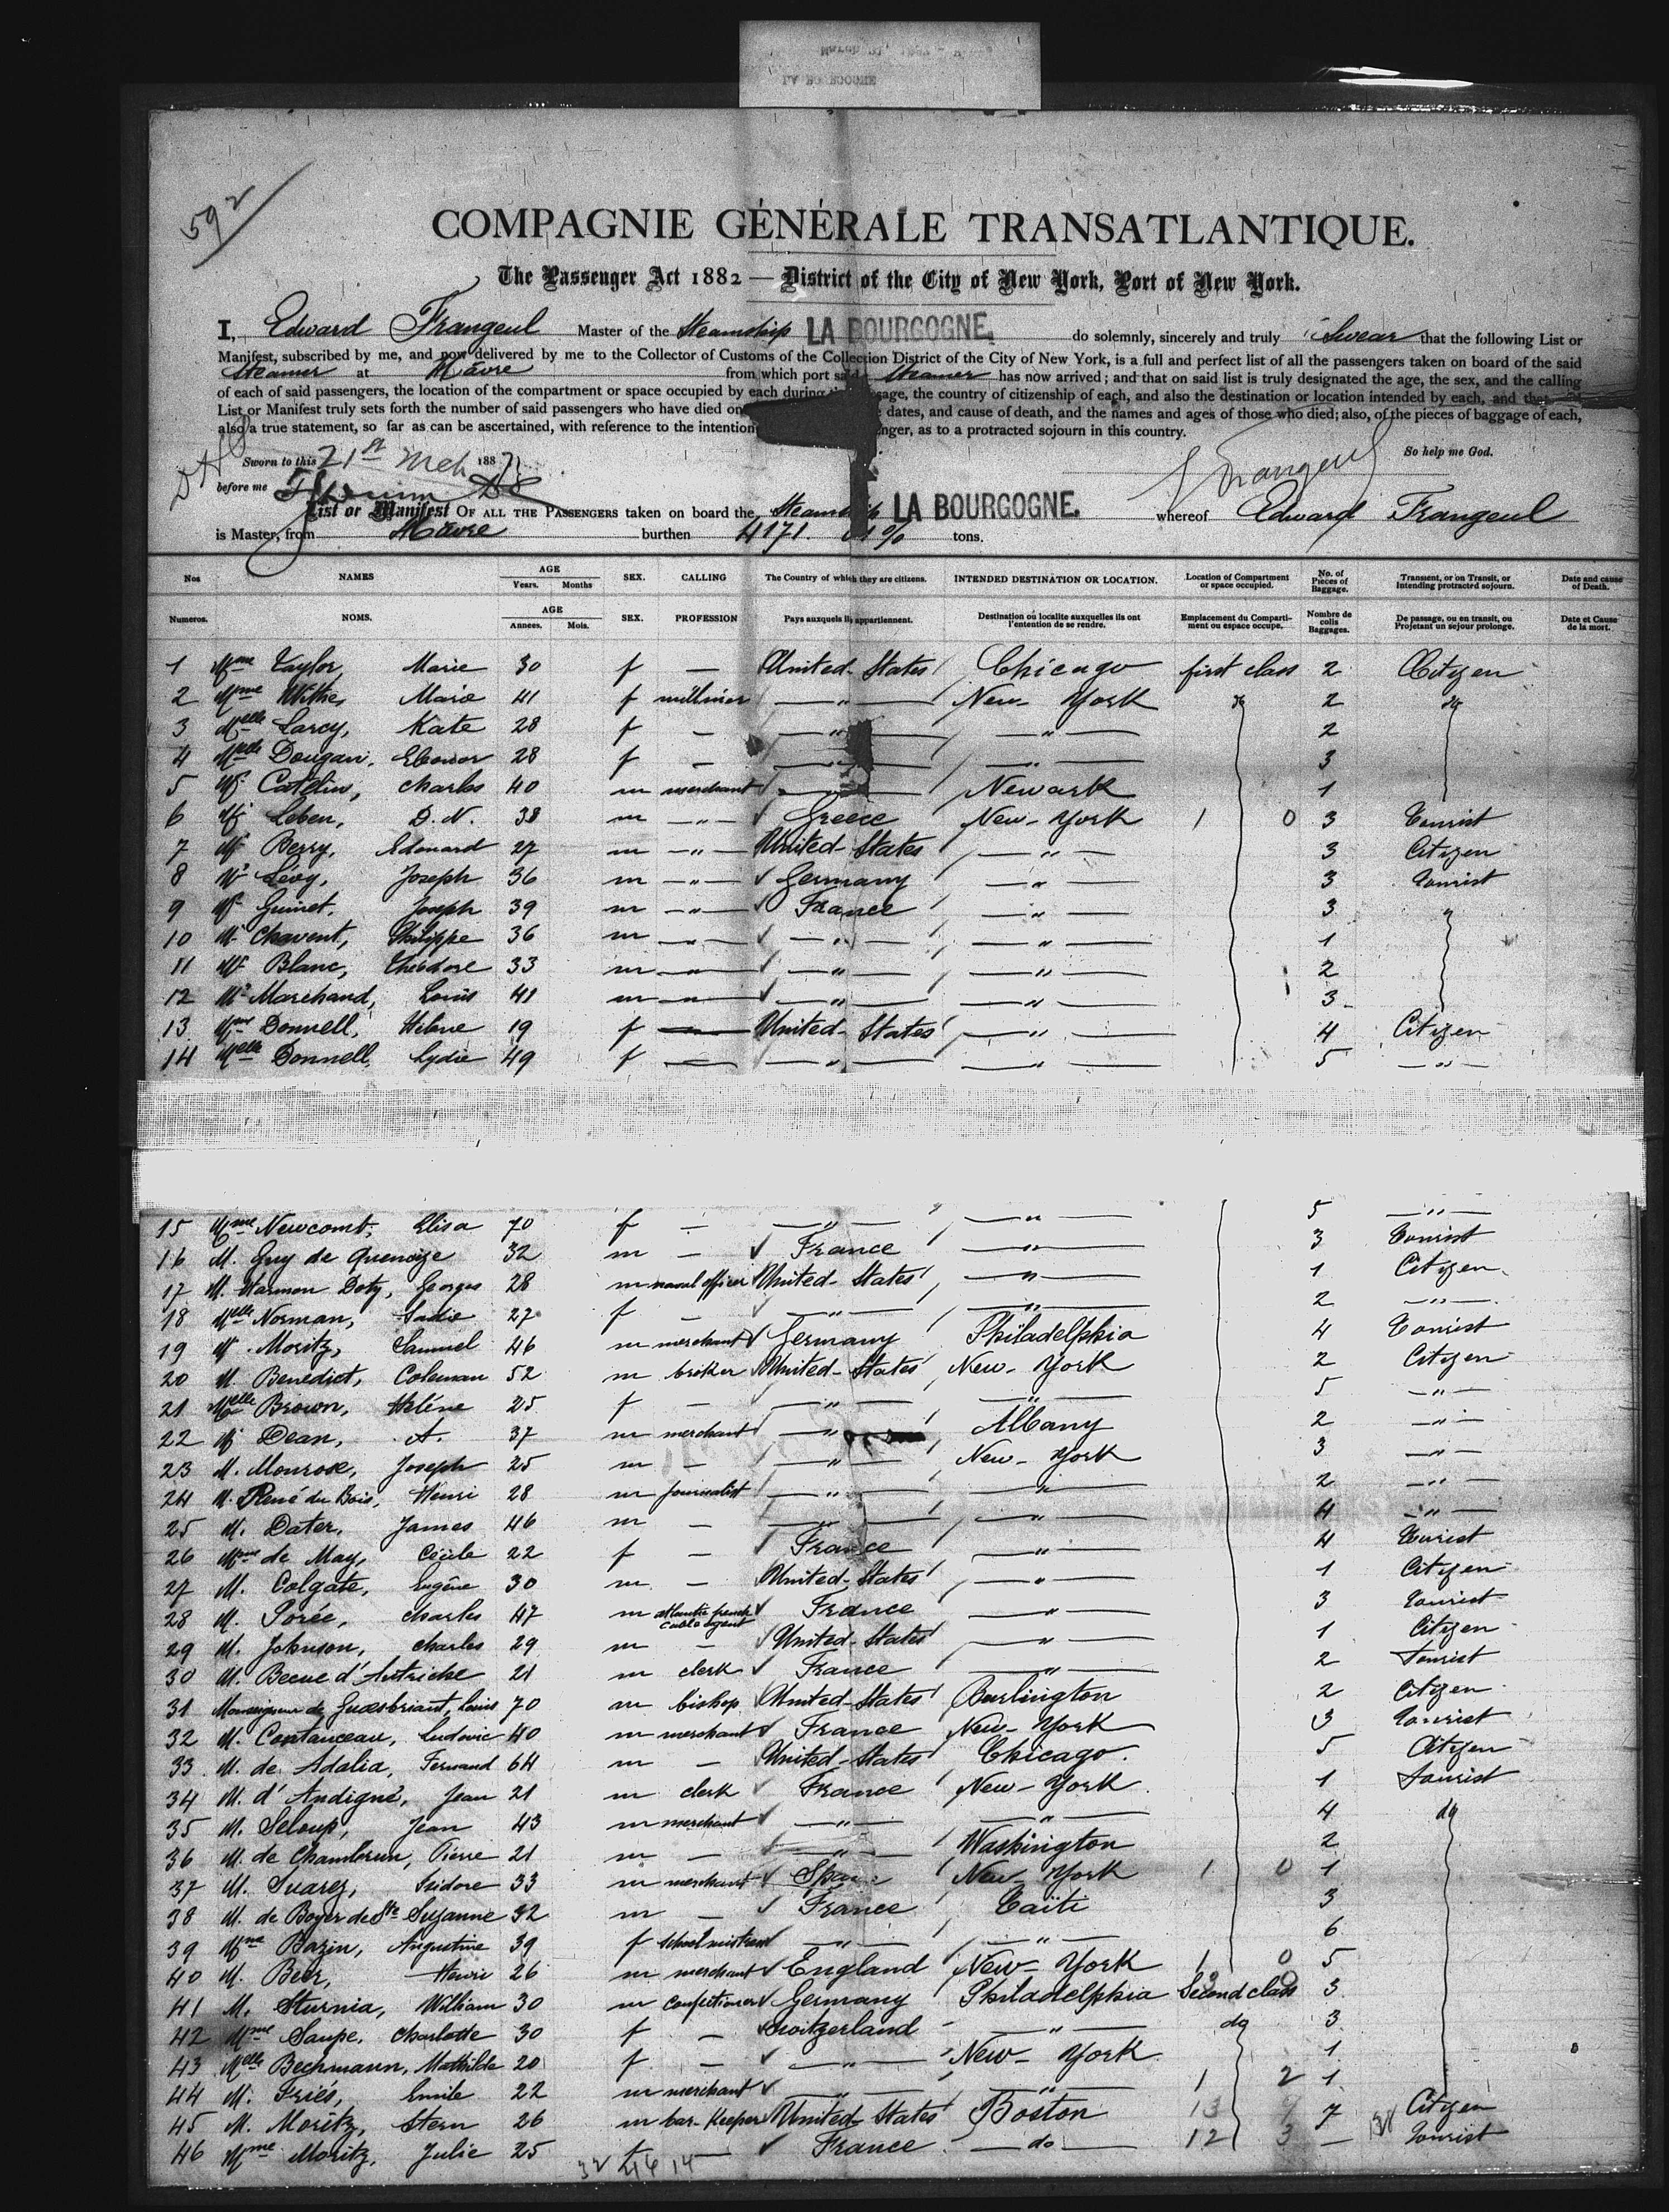 592
COMPAGNIE GÉNÉRALE TRANSATLANTIQUE.
The Passenger Act 1882 — District of the City of New York, Port of New York.
I, Edward Frangeul Master of the Steamship LA BOURGOGNE. do solemnly, sincerely and truly Swear that the following List or
Manifest, subscribed by me, and now delivered by me to the Collector of Customs of the Collection District of the City of New York, is a full and perfect list of all the passengers taken on board of the said
Steamer at Hâvre from which port said Steamer has now arrived; and that on said list is truly designated the age, the sex, and the calling
of each of said passengers, the location of the compartment or space occupied by each during sage, the country of citizenship of each, and also the destination or location intended by each, and that
List or Manifest truly sets forth the number of said passengers who have died on dates, and cause of death, and the names and ages of those who died; also, of the pieces of baggage of each,
also a true statement, so far as can be ascertained, with reference to the intention nger, as to a protracted sojourn in this country.
Sworn to this 21st Mch 1887 So help me God.
before me Frangeul
List or Manifest OF ALL THE PASSENGERS taken on board the Steamship LA BOURGOGNE. whereof Edward Frangeul
is Master, from Hâvre burthen 4171 tons.
Nos NAMES AGE Years. Months SEX. CALLING The Country of which they are citizens. INTENDED DESTINATION OR LOCATION. Location of Compartment or space occupied. No. of Pieces of Baggage. Transient, or on Transit, or Intending protracted sojourn. Date and cause of Death.
Numeros. NOMS. AGE Annees. Mois. SEX. PROFESSION Pays auxquels ils appartiennent. Destination où localite auxquelles ils ont l'entention de se rendre. Emplacement du Compartiment ou espace occupe. Nombre de colis Baggages. De passage, ou en transit, ou Projetant un sejour prolonge. Date et Cause de la mort.
1 Mme Taylor Marie 30 f — United-States Chicago first class 2 Citizen
2 Mme Withe, Marie 41 f milliner — " — New-York do 2 do
3 Melle Larcy, Kate 28 f — — " — — " — 2
4 Melle Dougan, Eleonor 28 f — — " — — " — 3
5 Mr Catelin, Charles 40 m merchant — " — Newark 1
6 Mr Leben, D. N. 38 m — " — Greece New-York 1 0 3 Tourist
7 Mr Berry, Edouard 27 m — " — United-States — " — 3 Citizen
8 Mr Lévy, Joseph 36 m — " — Germany — " — 3 Tourist
9 Mr Guinet, Joseph 39 m — " — France — " — 3 "
10 Mr Chavent, Philippe 36 m — " — — " — — " — 1
11 Mr Blanc, Théodore 33 m — " — — " — — " — 2
12 Mr Marchand, Louis 41 m — " — — " — — " — 3
13 Mme Donnell, Helene 19 f — United-States — " — 4 Citizen
14 Melle Donnell, Lydie 49 f — — " — — " — 5 — " —
15 Mme Newcomb, Elisa 70 f — — " — — " — 5 — " —
16 M. Guy de Quenoize 32 m — France — " — 3 Tourist
17 M. Harmon Doty, Georges 28 m naval officer United-States — " — 1 Citizen
18 Melle Norman, Sadie 27 f — — " — — " — 2 — " —
19 M. Moritz, Samuel 46 m merchant Germany Philadelphia 4 Tourist
20 M. Benedict, Coleman 52 m broker United-States New-York 2 Citizen
21 Melle Brown, Hélène 25 f — — " — — " — 5 — " —
22 Mr Dean, A. 37 m merchant — " — Albany 2 — " —
23 M. Monrose, Joseph 25 m — — " — New-York 3 — " —
24 M. René du Bois, Henri 28 m journalist — " — — " — 2 — " —
25 M. Dater, James 46 m — — " — — " — 4 — " —
26 Mme de May, Cécile 22 f — France — " — 4 Tourist
27 M. Colgate, Eugène 30 m — United-States — " — 1 Citizen
28 M. Porée, Charles 47 m atlantic french cable agent France — " — 3 Tourist
29 M. Johnson, Charles 29 m — United-States — " — 1 Citizen
30 M. Becue d'Autriche 21 m clerk France — " — 2 Tourist
31 Monseigneur de Goesbriant, Louis 70 m bishop United-States Burlington 2 Citizen
32 M. Contanceau, Ludovic 40 m merchant France New-York 3 Tourist
33 M. de Adalia, Fernand 64 m — United-States Chicago. 5 Citizen
34 M. d'Andigné, Jean 21 m clerk France New-York 1 Tourist
35 M. Seloup, Jean 43 m merchant — " — — " — 4 do
36 M. de Chambrun, Pierre 21 m — — " — Washington 2
37 M. Suarez, Isidore 33 m merchant Spain New-York 1 0 1
38 M. de Boyer de Ste Suzanne 32 m — France Taïti 3
39 Mme Bazin, Augustine 39 f School mistress — " — — " — 6
40 M. Beer, Henri 26 m merchant England New-York 1 0 5
41 M. Sturnia, William 30 m confectioner Germany Philadelphia Second class 3
42 Mme Saupe, Charlotte 30 f — Switzerland — " — do 3
43 Melle Bechmann, Mathilde 20 f — — " — New-York 1
44 M. Friés, Emile 22 m merchant — " — — " — 1 2 1
45 M. Moritz, Stern 26 m bar-Keeper United-States Boston 13 9 7 Citizen
46 Mme Moritz, Julie 25 f — France — do — 12 3 — Tourist
32 14